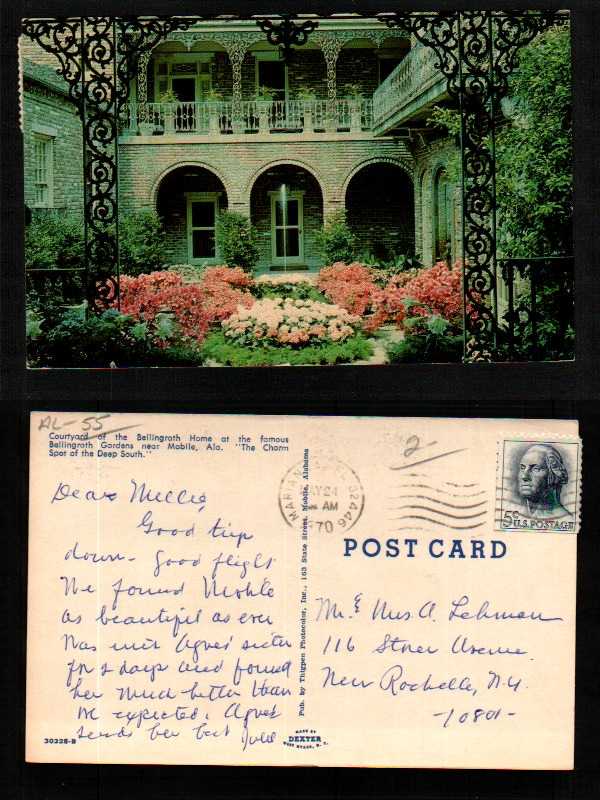 AL-55
Courtyard of the Bellingrath Home at the famous
Bellingrath Gardens near Mobile, Ala. "The Charm
Spot of the Deep South."
2-
MAY 24
AM
1970
32446
5¢
U.S. POSTAGE
Dear Millie,
Good trip
down - Good flight
We found Mobile
as beautiful as ever
Was with Agnes' sister
for 2 days and found
her much better than
we expected. Agnes
sends her best love
POST CARD
Mr & Mrs A. Lehman
116 Storer Avenue.
New Rochelle, N.Y.
-10801-
Pub. by Thigpen Photocolor, Inc., 163 State Street, Mobile, Alabama
30228-B
MADE BY
DEXTER
WEST NYACK, N. Y.